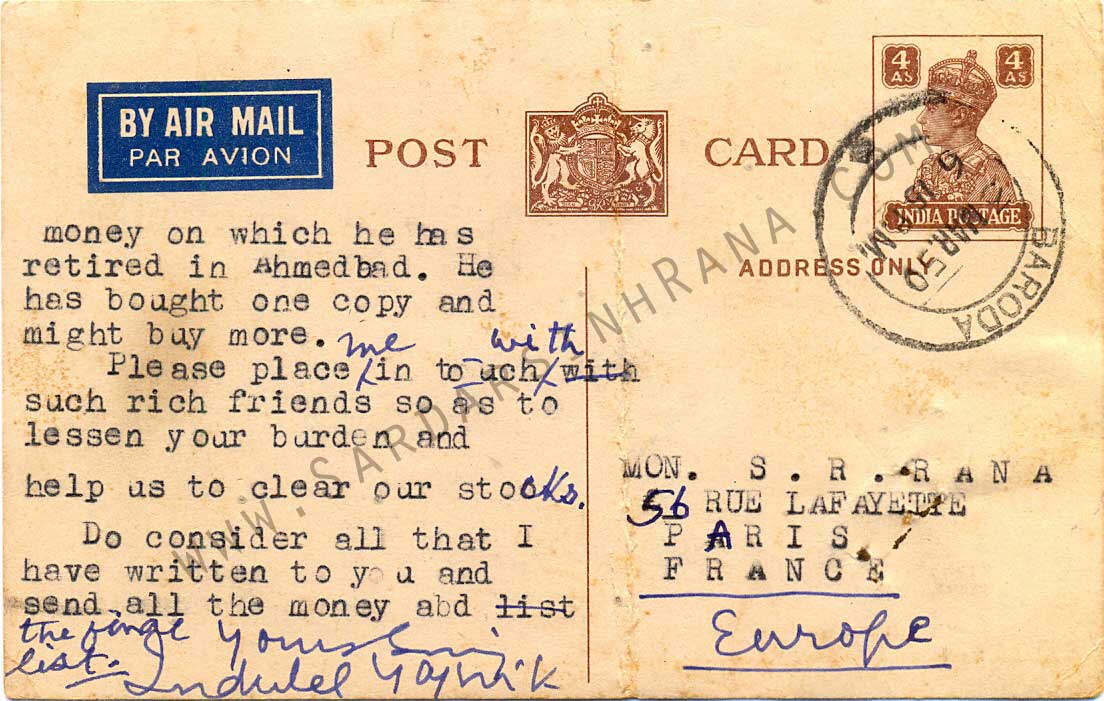 BY AIR MAIL
PAR AVION
POST CARD
4 AS 4 AS
INDIA POSTAGE
ADDRESS ONLY
BARODA
MAR.50
money on which he has
retired in Ahmedbad. He
has bought one copy and
might buy more.
me with
Please place in touch with
such rich friends so as to
lessen your burden and
help us to clear our stoocks.
Do consider all that I
have written to you and
send all the money abd list
the final Yours Sin
list. Indulal Yajnik
MON. S.R.RANA
56 RUE LAFAYETTE
PARIS
FRANCE
Europe
WWW.SARDARSINHRANA.COM